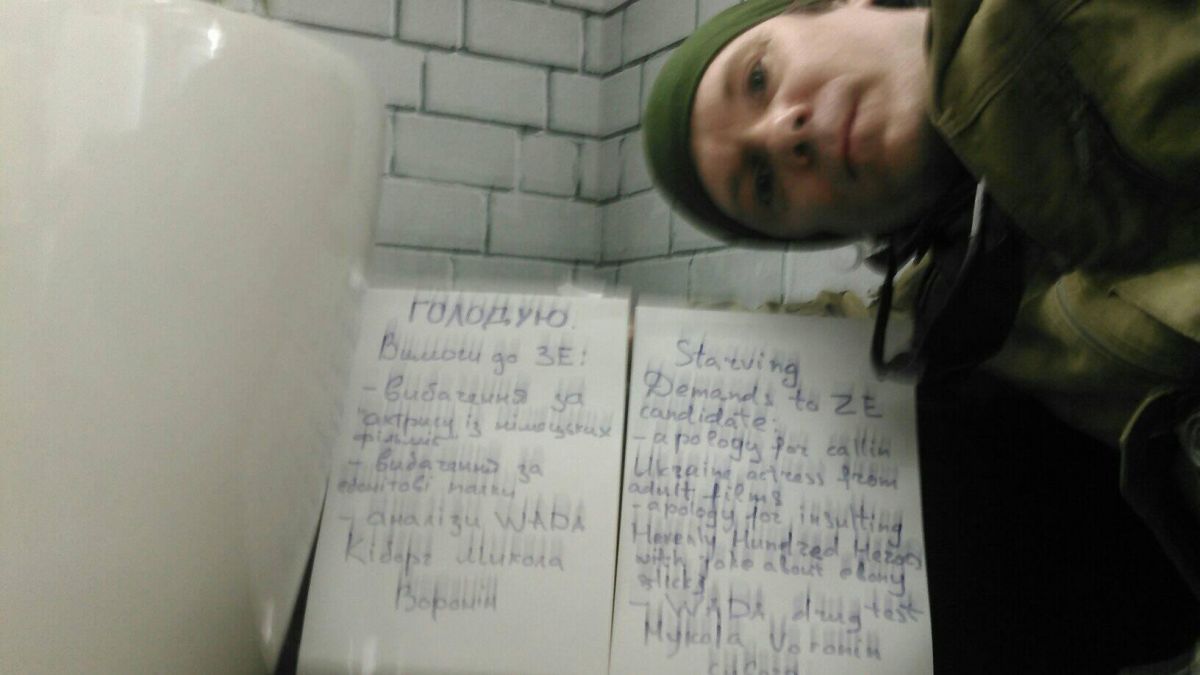 ГОЛОДУЮ.
Вимоги до ЗЕ:
- вибачення за
"актрису із німецьких
фільмів"
- вибачення за
ебонітові палки
- аналізи WADA
Кіборг Микола
Воронін
Starving
Demands to ZE
candidate:
- apology for callin
Ukraine actress from
adult films
- apology for insulting
Hevenly Hundred Heroes
with joke about ebony
sticks
- WADA drug test
Mykola Voronin